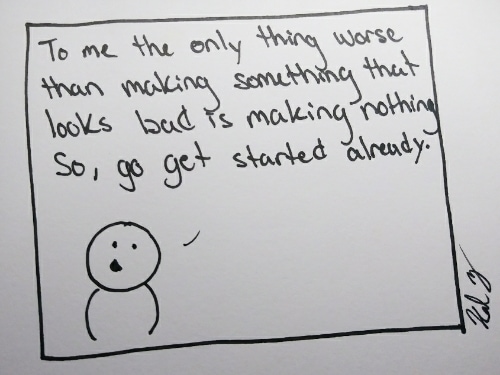 To me the only thing worse
than making something that
looks bad is making nothing
So, go get started already.